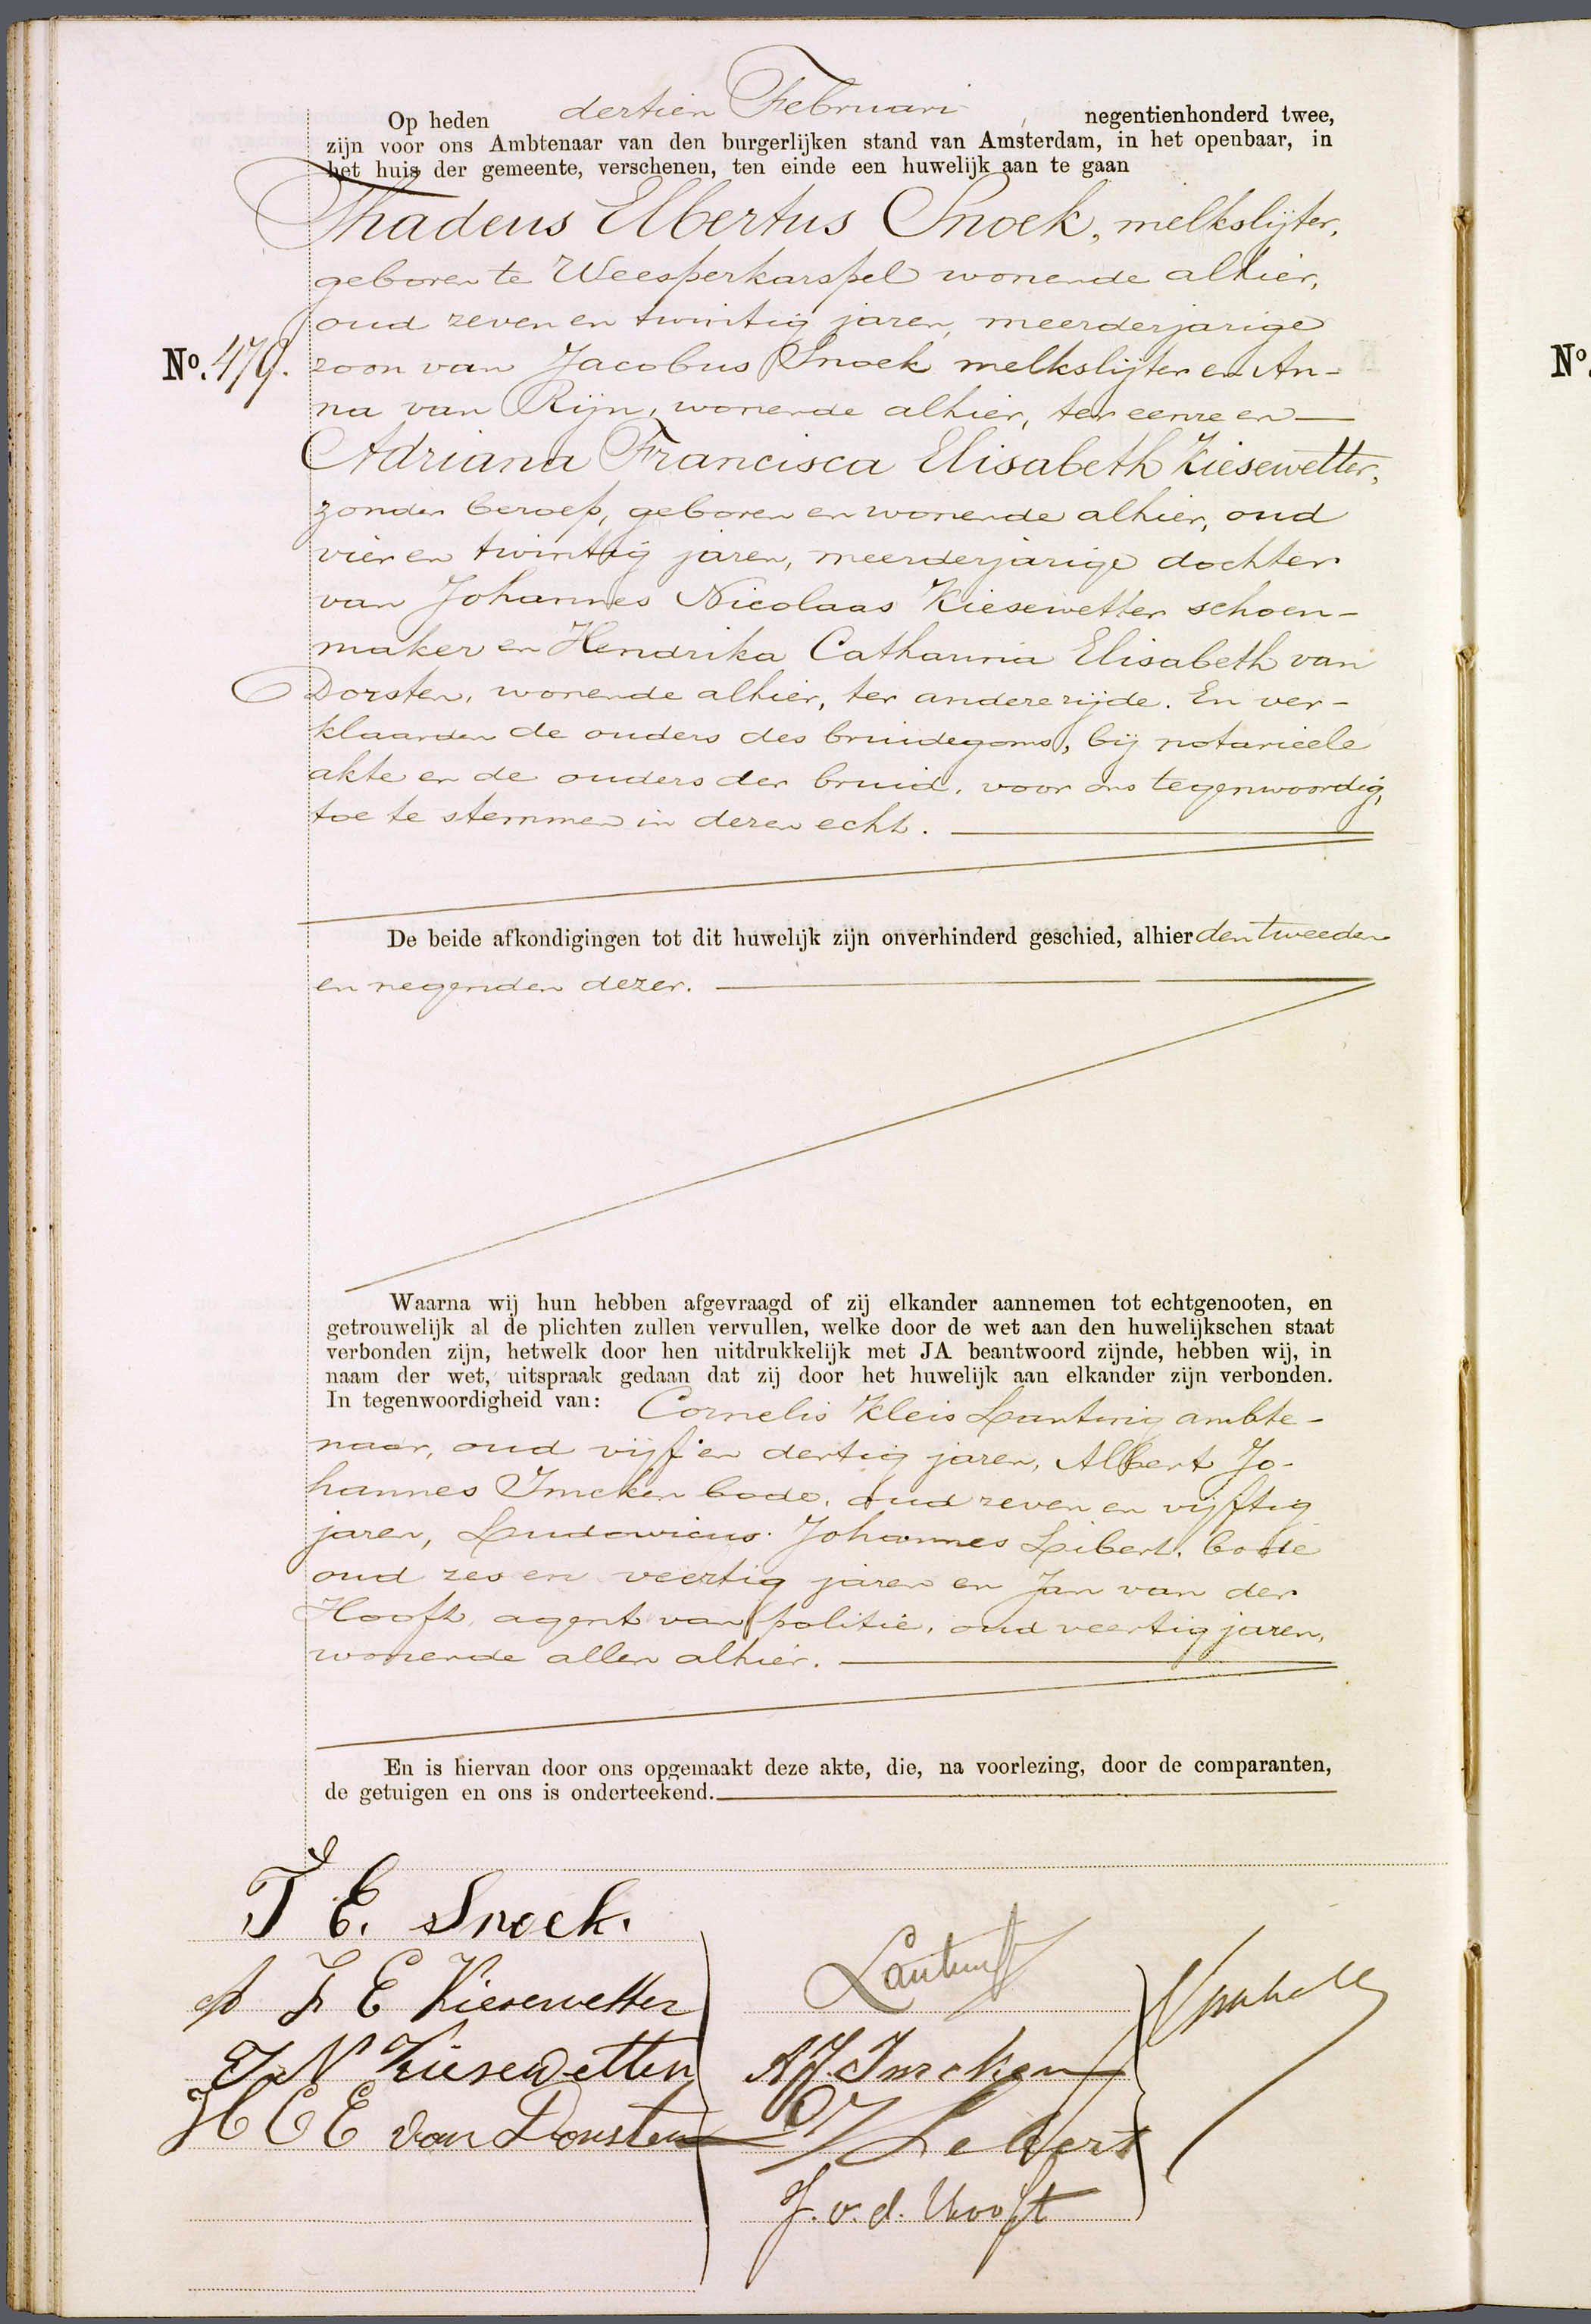 Op heden dertien Februari, negentienhonderd twee,
zijn voor ons Ambtenaar van den burgerlijken stand van Amsterdam, in het openbaar, in
het huis der gemeente, verschenen, ten einde een huwelijk aan te gaan
Thadeus Elbertus Snoek, melkslijter,
geboren te Weesperkarspel wonende alhier,
oud zeven en twintig jaren, meerderjarige
No. 479. zoon van Jacobus Snoek melkslijter en An-
na van Rijn, wonende alhier, ter eenre en
Adriana Francisca Elisabeth Kiesewetter,
zonder beroep, geboren en wonende alhier, oud
vier en twintig jaren, meerderjarige dochter
van Johannes Nicolaas Kiesewetter schoen-
maker en Hendrika Catharina Elisabeth van
Dorsten, wonende alhier, ter andere zijde. En ver-
klaarden de ouders des bruidegoms, bij notarieele
akte en de ouders der bruid, voor ons tegenwoordig,
toe te stemmen in dezen echt.
De beide afkondigingen tot dit huwelijk zijn onverhinderd geschied, alhier den tweeden
en negenden dezer.
Waarna wij hun hebben afgevraagd of zij elkander aannemen tot echtgenooten, en
getrouwelijk al de plichten zullen vervullen, welke door de wet aan den huwelijkschen staat
verbonden zijn, hetwelk door hen uitdrukkelijk met JA beantwoord zijnde, hebben wij, in
naam der wet, uitspraak gedaan dat zij door het huwelijk aan elkander zijn verbonden.
In tegenwoordigheid van: Cornelis Kleis Lunting ambte-
naar, oud vijf en dertig jaren, Albert Jo-
hannes Imcken bode, oud zeven en vijftig
jaren, Ludovicus Johannes Libert, bode
oud zes en veertig jaren en Jan van der
Hooft, agent van politie, oud veertig jaren,
wonende allen alhier.
En is hiervan door ons opgemaakt deze akte, die, na voorlezing, door de comparanten,
de getuigen en ons is onderteekend.
T E. Snoek.
A F E Kiesewetter
J N Kiesewetter
H C E van Dorsten
A J Imcken
L J Libert
J. v. d. Hooft
No.